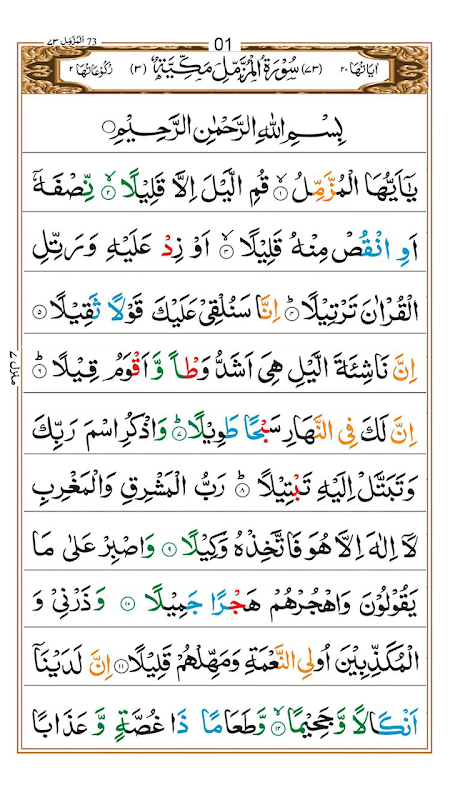 73 اَلْمُزَّمِّل ٧٣
01
اٰیَاتُهَا ٢٠ (٧٣) سُوْرَةُ الْمُزَّمِّلِ مَكِّیَّةٌ (٣) رُكُوْعَاتُهَا ٢
بِسْمِ اللّٰهِ الرَّحْمٰنِ الرَّحِیْمِ
یٰۤاَیُّهَا الْمُزَّمِّلُ ۙ﴿١﴾ قُمِ الَّیْلَ اِلَّا قَلِیْلًا ۙ﴿٢﴾ نِّصْفَهٗۤ
اَوِ انْقُصْ مِنْهُ قَلِیْلًا ۙ﴿٣﴾ اَوْ زِدْ عَلَیْهِ وَ رَتِّلِ
الْقُرْاٰنَ تَرْتِیْلًا ؕ﴿٤﴾ اِنَّا سَنُلْقِیْ عَلَیْكَ قَوْلًا ثَقِیْلًا ﴿٥﴾
اِنَّ نَاشِئَةَ الَّیْلِ هِیَ اَشَدُّ وَطْاً وَّ اَقْوَمُ قِیْلًا ؕ﴿٦﴾
اِنَّ لَكَ فِی النَّهَارِ سَبْحًا طَوِیْلًا ؕ﴿٧﴾ وَ اذْكُرِ اسْمَ رَبِّكَ
وَ تَبَتَّلْ اِلَیْهِ تَبْتِیْلًا ؕ﴿٨﴾ رَبُّ الْمَشْرِقِ وَ الْمَغْرِبِ
لَاۤ اِلٰهَ اِلَّا هُوَ فَاتَّخِذْهُ وَكِیْلًا ﴿٩﴾ وَ اصْبِرْ عَلٰی مَا
یَقُوْلُوْنَ وَ اهْجُرْهُمْ هَجْرًا جَمِیْلًا ﴿١٠﴾ وَ ذَرْنِیْ وَ
الْمُكَذِّبِیْنَ اُولِی النَّعْمَةِ وَ مَهِّلْهُمْ قَلِیْلًا ﴿١١﴾ اِنَّ لَدَیْنَاۤ
اَنْكَالًا وَّ جَحِیْمًا ۙ﴿١٢﴾ وَّ طَعَامًا ذَا غُصَّةٍ وَّ عَذَابًا
منزل ٧